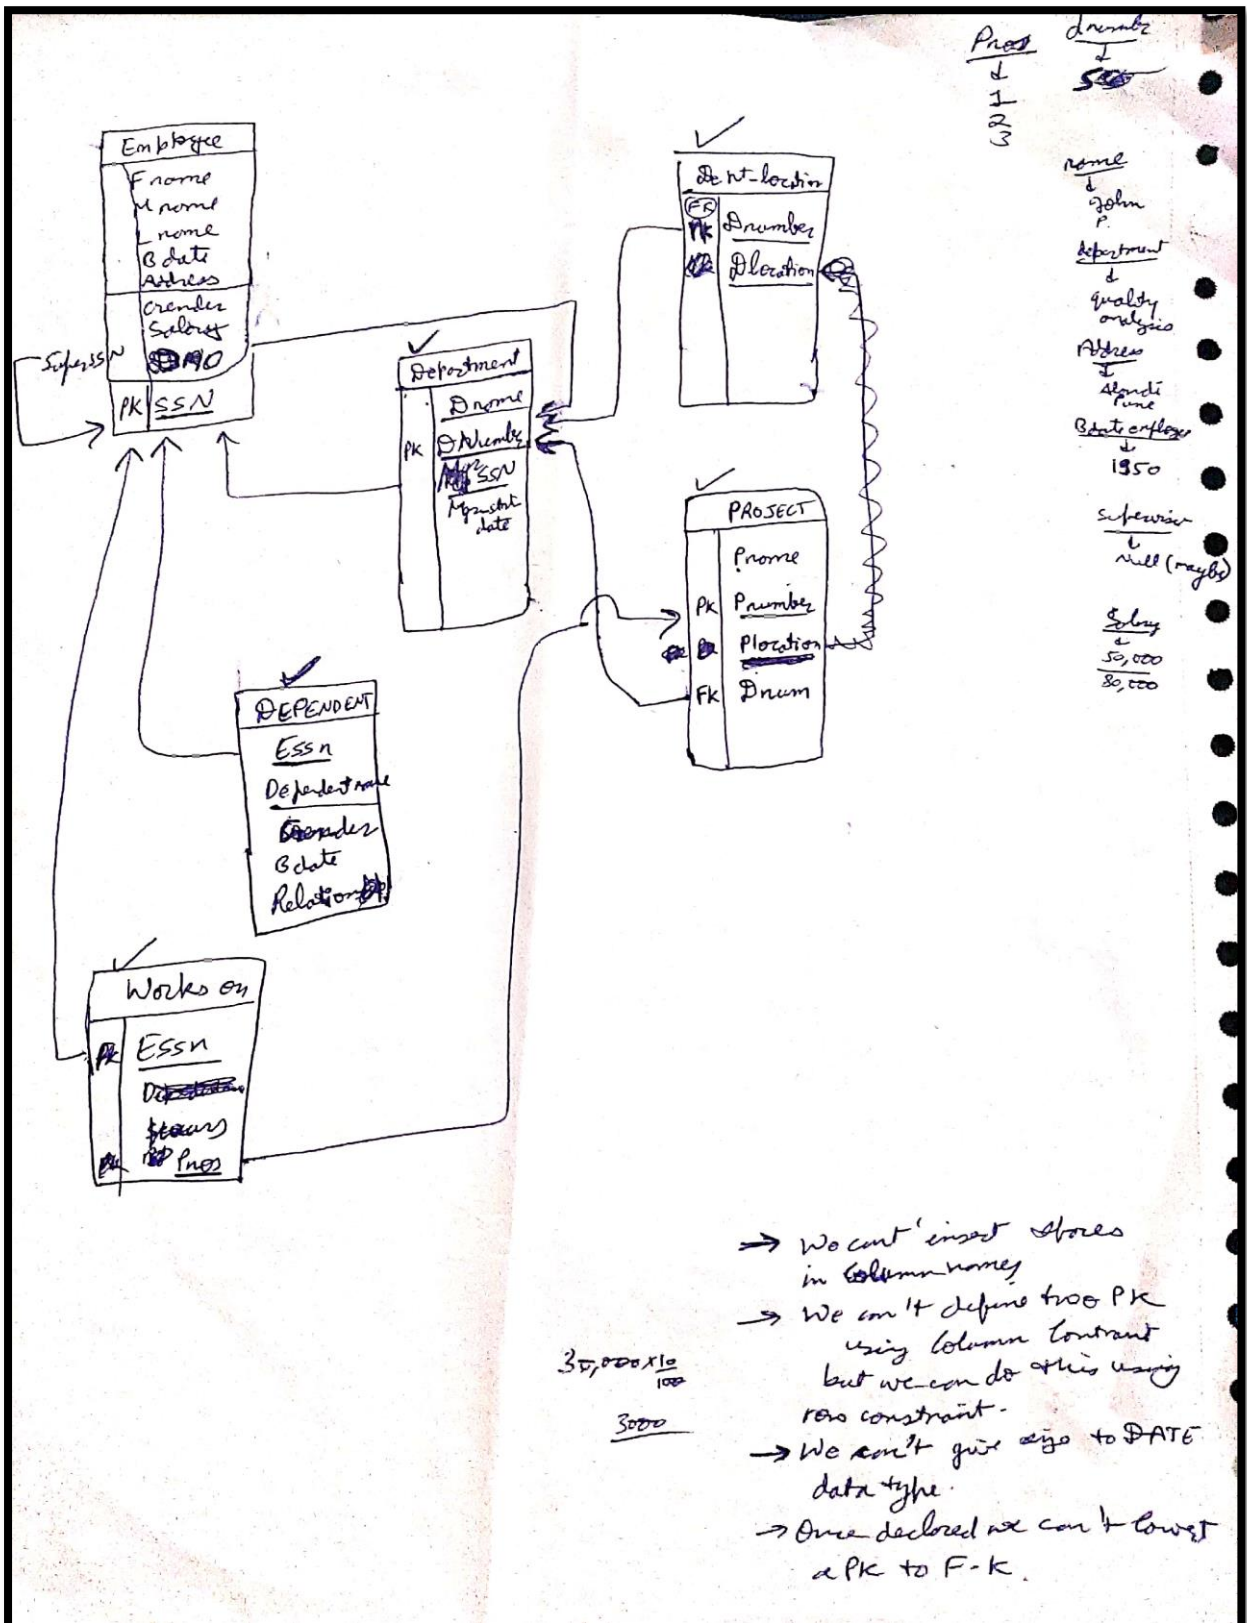 Employee
Fname
Mname
Lname
Bdate
Address
Gender
Salary
SuperSSN
PK SSN
Department
Dname
PK DNumber
SSN
Mgr start
date
Dept-location
FK
PK Dnumber
Dlocation
PROJECT
Pname
PK Pnumber
Plocation
FK Dnum
DEPENDENT
Essn
Dependent name
Gender
Bdate
Relation
Works on
PK Essn
Hours
Pnos
Pnos
1
2
3
dnumber
name
John
P.
department
quality
analysis
Address
Alandi
Pune
Bdate employee
1950
supervisor
Null (maybe)
Salary
50,000
80,000
→ We cant' insert spaces
in Column names
→ We can't define two PK
using Column Contraint
but we can do this using
row constraint.
→ We can't give size to DATE
data type.
→ Once declared we can't
a PK to F-K.
30,000 x 10
100
3000